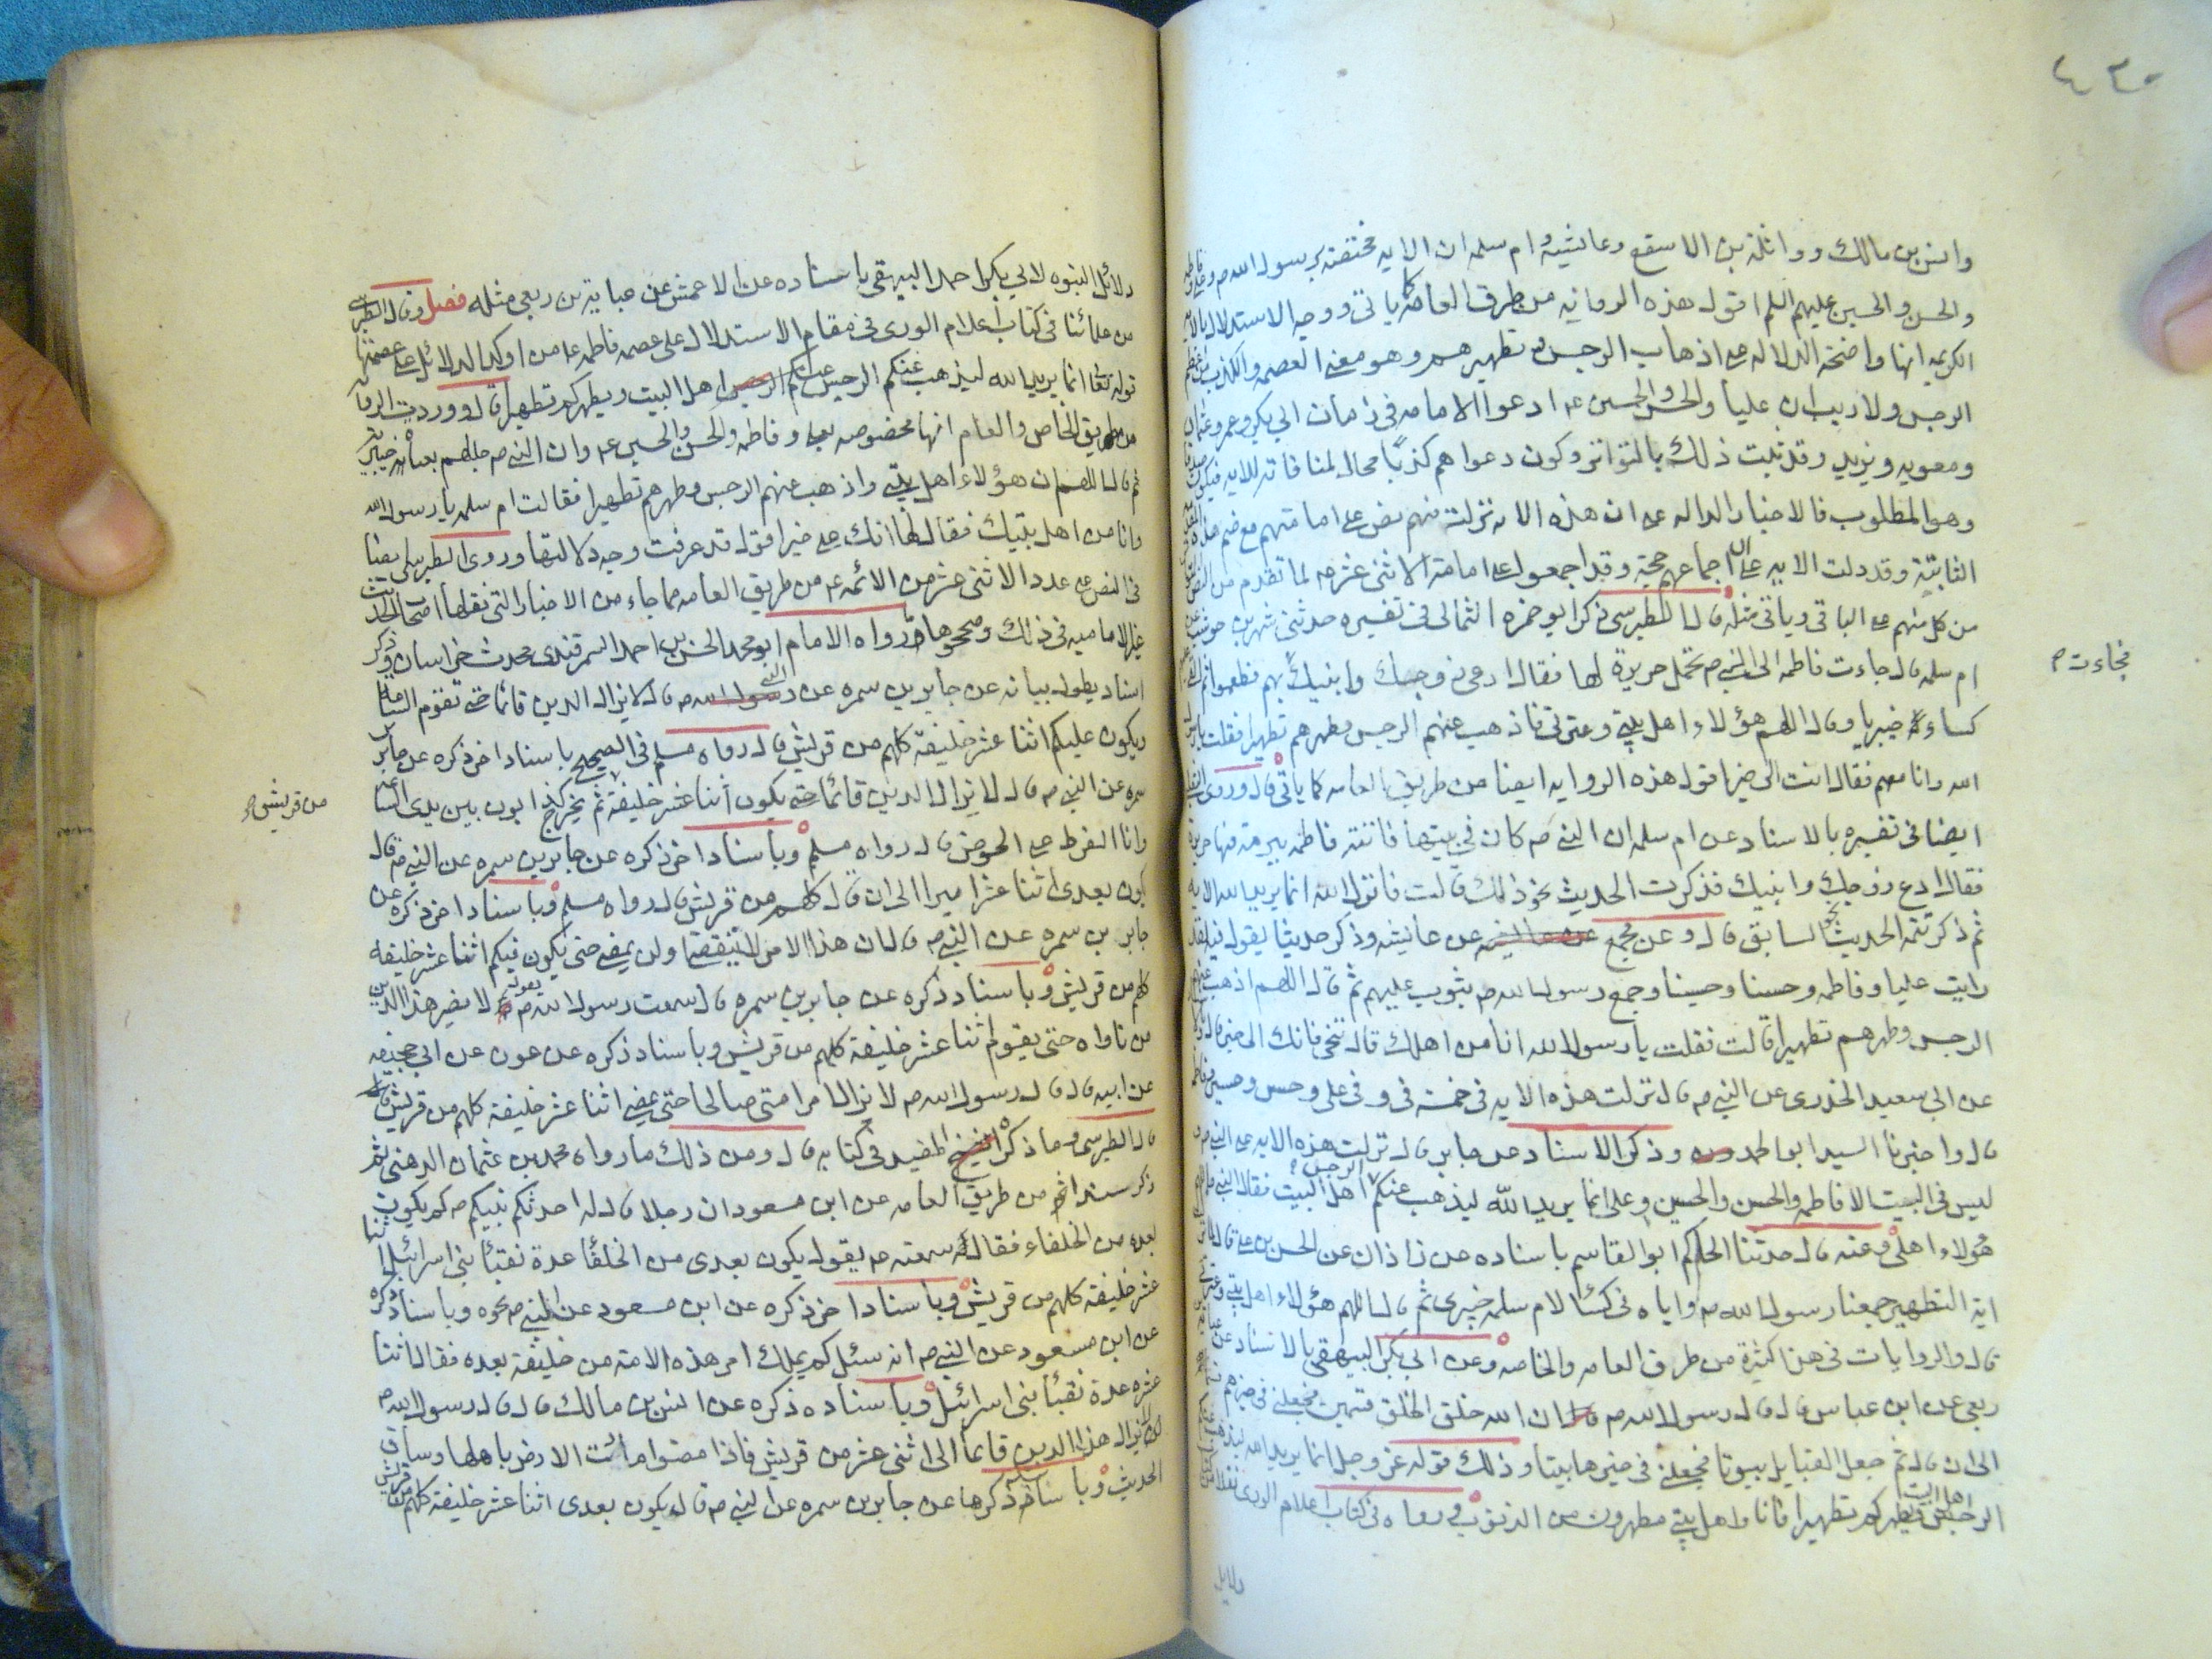 ٤٣٠
وانس بن مالك وواثلة بن الاسقع وعائشه وام سلمه ان الايه مختصة برسول الله ص وعلي وفاطمه
والحسن والحسين عليهم السلم اقول هذه الروايه من طرق العامة كما ياتى ووجه الاستدلال بالايه
الكريمه انها واضحة الدلاله على اذهاب الرجس وتطهيرهم وهو معنى العصمه والكذب من اعظم
الرجس ولا ريب ان عليا والحسن والحسين ع ادعوا الامامه فى زمان ابي بكر وعمر وعثمان
ومعويه ويزيد وقد ثبت ذلك بالتواتر وكون دعواهم كذبا محال لمنافاته للايه فيكون
وهو المطلوب فالاخبار الداله على ان هذه الايه نزلت فيهم نص على امامتهم مع ضم هذه
الثابتة وقد دلت الايه على ان اجماعهم حجة وقد اجمعوا على امامة الاثنى عشر ع لما تقدم من النص
من كل منهم على الباقى وياتى مثله قال الطبرسى ذكر ابو حمزه الثمالى فى تفسيره حدثنى شهر بن حوشب عن
ام سلمه قال جاءت فاطمه الى النبي ص تحمل حريرة لها فقال ادعى زوجك وابنيك بهم فطعموا ثم
فجاءت م
كساء خيبريا وقال اللهم هؤلاء اهل بيتي وعترتى فاذهب عنهم الرجس وطهرهم تطهيرا فقلت يا رسول
الله وانا معهم فقال انت الى خير اقول هذه الروايه ايضا من طريق العامه كما ياتى قال وروى
ايضا فى تفسيره بالاسناد عن ام سلمه ان النبي ص كان فى بيتها فاتته فاطمه ببرمة فيها حريره
فقال ادع زوجك وابنيك فذكرت الحديث نحو ذلك قالت فانزل الله انما يريد الله الايه
ثم ذكر تتمه الحديث نحو السابق قال وعن مجمع عن عايشه وذكر حديثا يقول فيه لقد
رايت عليا وفاطمه وحسنا وحسينا وجمع رسول الله ص بثوب عليهم ثم قال اللهم اذهب عنهم
الرجس وطهرهم تطهيرا قالت فقلت يا رسول الله انا من اهلك قال تنحى فانك الى خير قال
عن ابي سعيد الخدرى عن النبي ص قال نزلت هذه الايه فى خمسة فى وفى على وحسن وحسين وفاطمه
قال واخبرنا السيد ابو الحمد وذكر الاسناد عن جابر قال نزلت هذه الايه على النبي ص
ليس فى البيت الا فاطمه والحسن والحسين وعلى انما يريد الله ليذهب عنكم الرجس اهل البيت فقال النبي ص
هؤلاء اهلى وعنه قال حدثنا الحاكم ابو القاسم باسناده عن زاذان عن الحسن بن على قال
اية التطهير جمعنا رسول الله ص واياه فى كساء لام سلمه خيبرى ثم قال اللهم هؤلاء اهل بيتي وعترتى
قال والروايات فى هذا كثيرة من طرق العامه والخاصه وعن ابي بكر البيهقى بالاسناد عن
ربعى عن ابن عباس قال قال رسول الله ص ان الله خلق الخلق قسمين فجعلنى فى خيرهم
الى ان قال ثم جعل القبايل بيوتا فجعلنى فى خيرها بيتا وذلك قوله عز وجل انما يريد الله ليذهب
الرجس اهل البيت ويطهركم تطهيرا فانا واهل بيتي مطهرون من الذنوب ورواه فى كتاب اعلام الورى نقلا
دلايل
دلائل النبوه لابي بكر احمد البيهقى باسناده عن الاعمش عن عباية بن ربعى مثله فصل وقال الطبرسى
من علمائنا فى كتاب اعلام الورى فى مقام الاستدلال على عصمه فاطمه ع من اوكد الدلائل على عصمتها
قوله تعالى انما يريد الله ليذهب عنكم الرجس اهل البيت ويطهركم تطهيرا قال ووردت الروايه
من طريق الخاص والعام انها مخصوصه بعلى وفاطمه والحسن والحسين ع وان النبي ص جللهم بعباءة خيبرية
ثم قال اللهم ان هؤلاء اهل بيتي واذهب عنهم الرجس وطهرهم تطهيرا فقالت ام سلمه يا رسول الله
وانا من اهل بيتك فقال لها انك على خير اقول قد عرفت وجه دلالتها وروى الطبرسى ايضا
فى النص على عدد الاثنى عشر من الائمه ع من طريق العامه مما جاء من الاخبار التى نقلها اصحاب الحديث
غير الاماميه فى ذلك وصححوها ورواه الامام ابو محمد الحسن بن احمد السمرقندى محدث خراسان وذكر
اسناد يطول بيانه عن جابر بن سمره عن النبي ص قال لا يزال الدين قائما حتى تقوم الساعة
ويكون عليكم اثنا عشر خليفة كلهم من قريش قال رواه مسلم فى الصحيح باسناد اخر ذكره عن جابر بن
سمره عن النبي ص قال لا يزال الدين قائما حتى يكون اثنا عشر خليفة ثم يخرج كذابون بين يدى الساعة
من قريش م
وانا الفرط على الحوض قال رواه مسلم وباسناد اخر ذكره عن جابر بن سمره عن النبي ص قال
يكون بعدى اثنا عشر اميرا الى ان قال كلهم من قريش قال رواه مسلم وباسناد اخر ذكره عن
جابر بن سمره عن النبي ص قال ان هذا الامر لا ينقضى ولن يمضى حتى يكون فيكم اثنا عشر خليفه
كلهم من قريش وباسناد ذكره عن جابر بن سمره قال سمعت رسول الله ص يقول لا يضر هذا الدين
من ناواه حتى يقوم اثنا عشر خليفة كلهم من قريش وباسناد ذكره عن عون عن ابي جحيفه
عن ابيه قال قال رسول الله ص لا يزال امر امتى صالحا حتى يمضى اثنا عشر خليفة كلهم من قريش
قال الطبرسى ومما ذكر الشيخ المفيد فى كتابه قال ومن ذلك ما رواه محمد بن عثمان الدهنى ثم
ذكر سندا من طريق العامه عن ابن مسعود ان رجلا قال له احدثكم نبيكم ص كم يكون
بعده من الخلفاء فقال له سمعته ص يقول يكون بعدى من الخلفا عدة نقبا بنى اسرائيل اثنا
عشر خليفة كلهم من قريش وباسناد اخر ذكره عن ابن مسعود عن النبي ص نحوه وباسناد ذكره
عن ابن مسعود عن النبي ص انه سئل كم يملك امر هذه الامة من خليفة بعده فقال اثنا
عشر عدة نقبا بنى اسرائيل وباسناده ذكره عن انس بن مالك قال قال رسول الله ص
لن يزال هذا الدين قائما الى اثنى عشر من قريش فاذا مضوا ماجت الارض باهلها وساق
الحديث وباسناد اخر ذكرها عن جابر بن سمره عن النبي ص قال يكون بعدى اثنا عشر خليفة كلهم من قريش